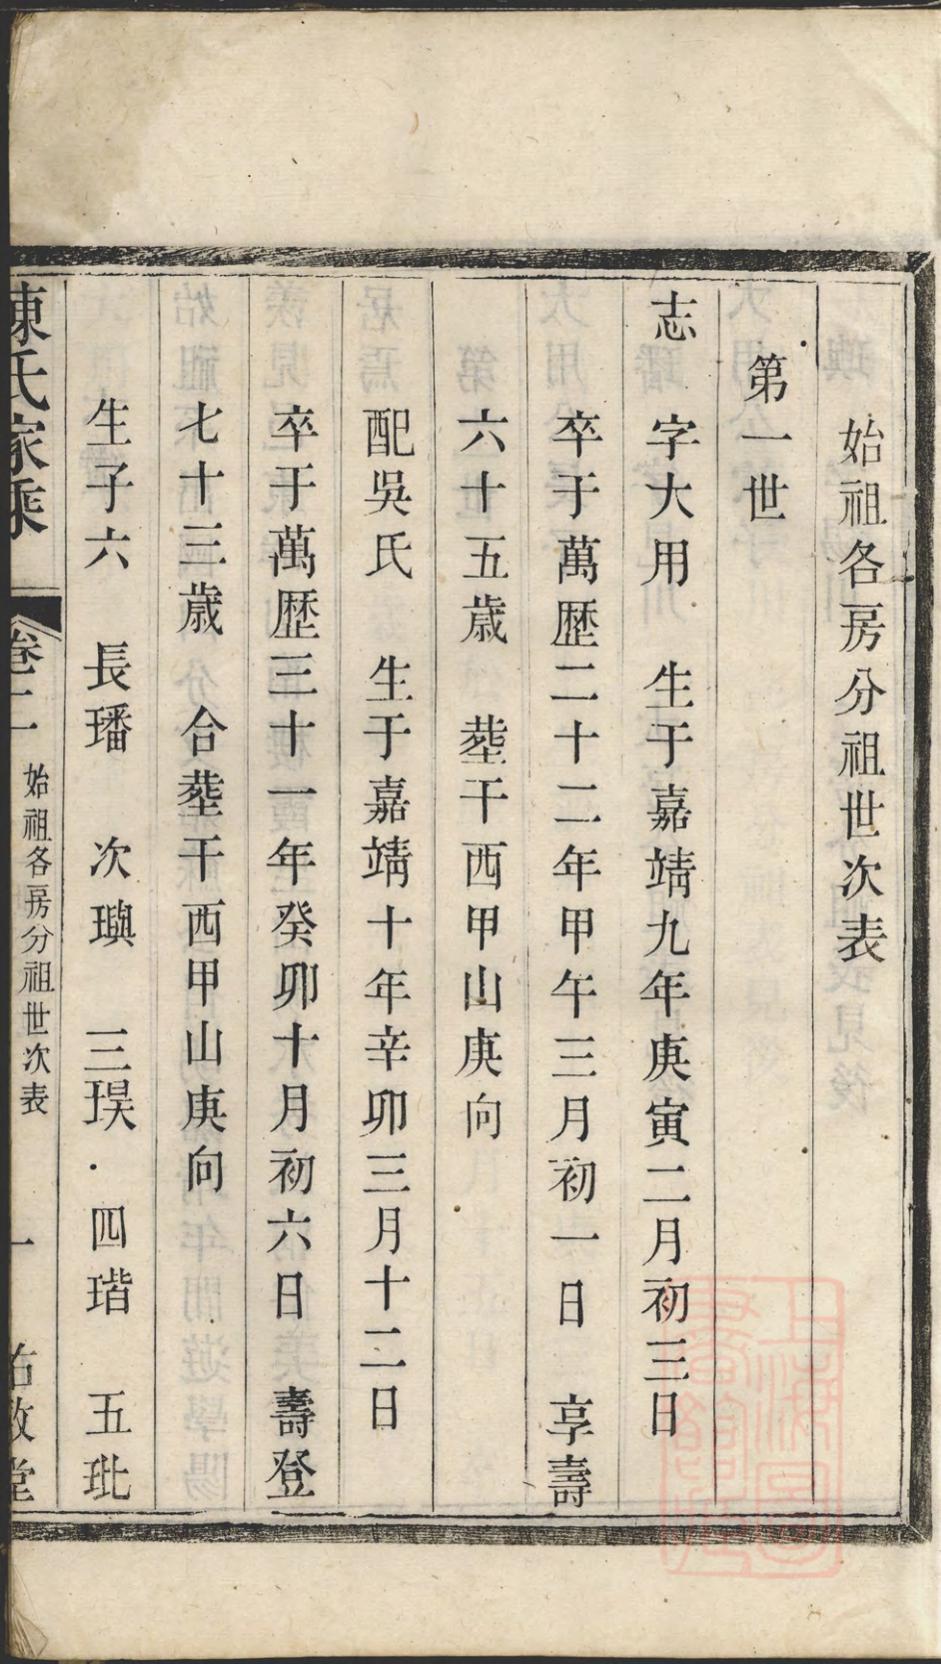 始祖各房分祖世次表
第一世
志 字大用 生于嘉靖九年庚寅二月初三日
卒于萬歷二十二年甲午三月初一日 享壽
六十五歲 塟干西甲山庚向
配吳氏 生于嘉靖十年辛卯三月十二日
卒于萬歷三十一年癸卯十月初六日 壽登
七十三歲 合塟干西甲山庚向
生子六 長璠 次璵 三𤨒 四瑎 五玭
陳氏家乘 卷二 始祖各房分祖世次表 一 佑啟堂
上海圖書館藏